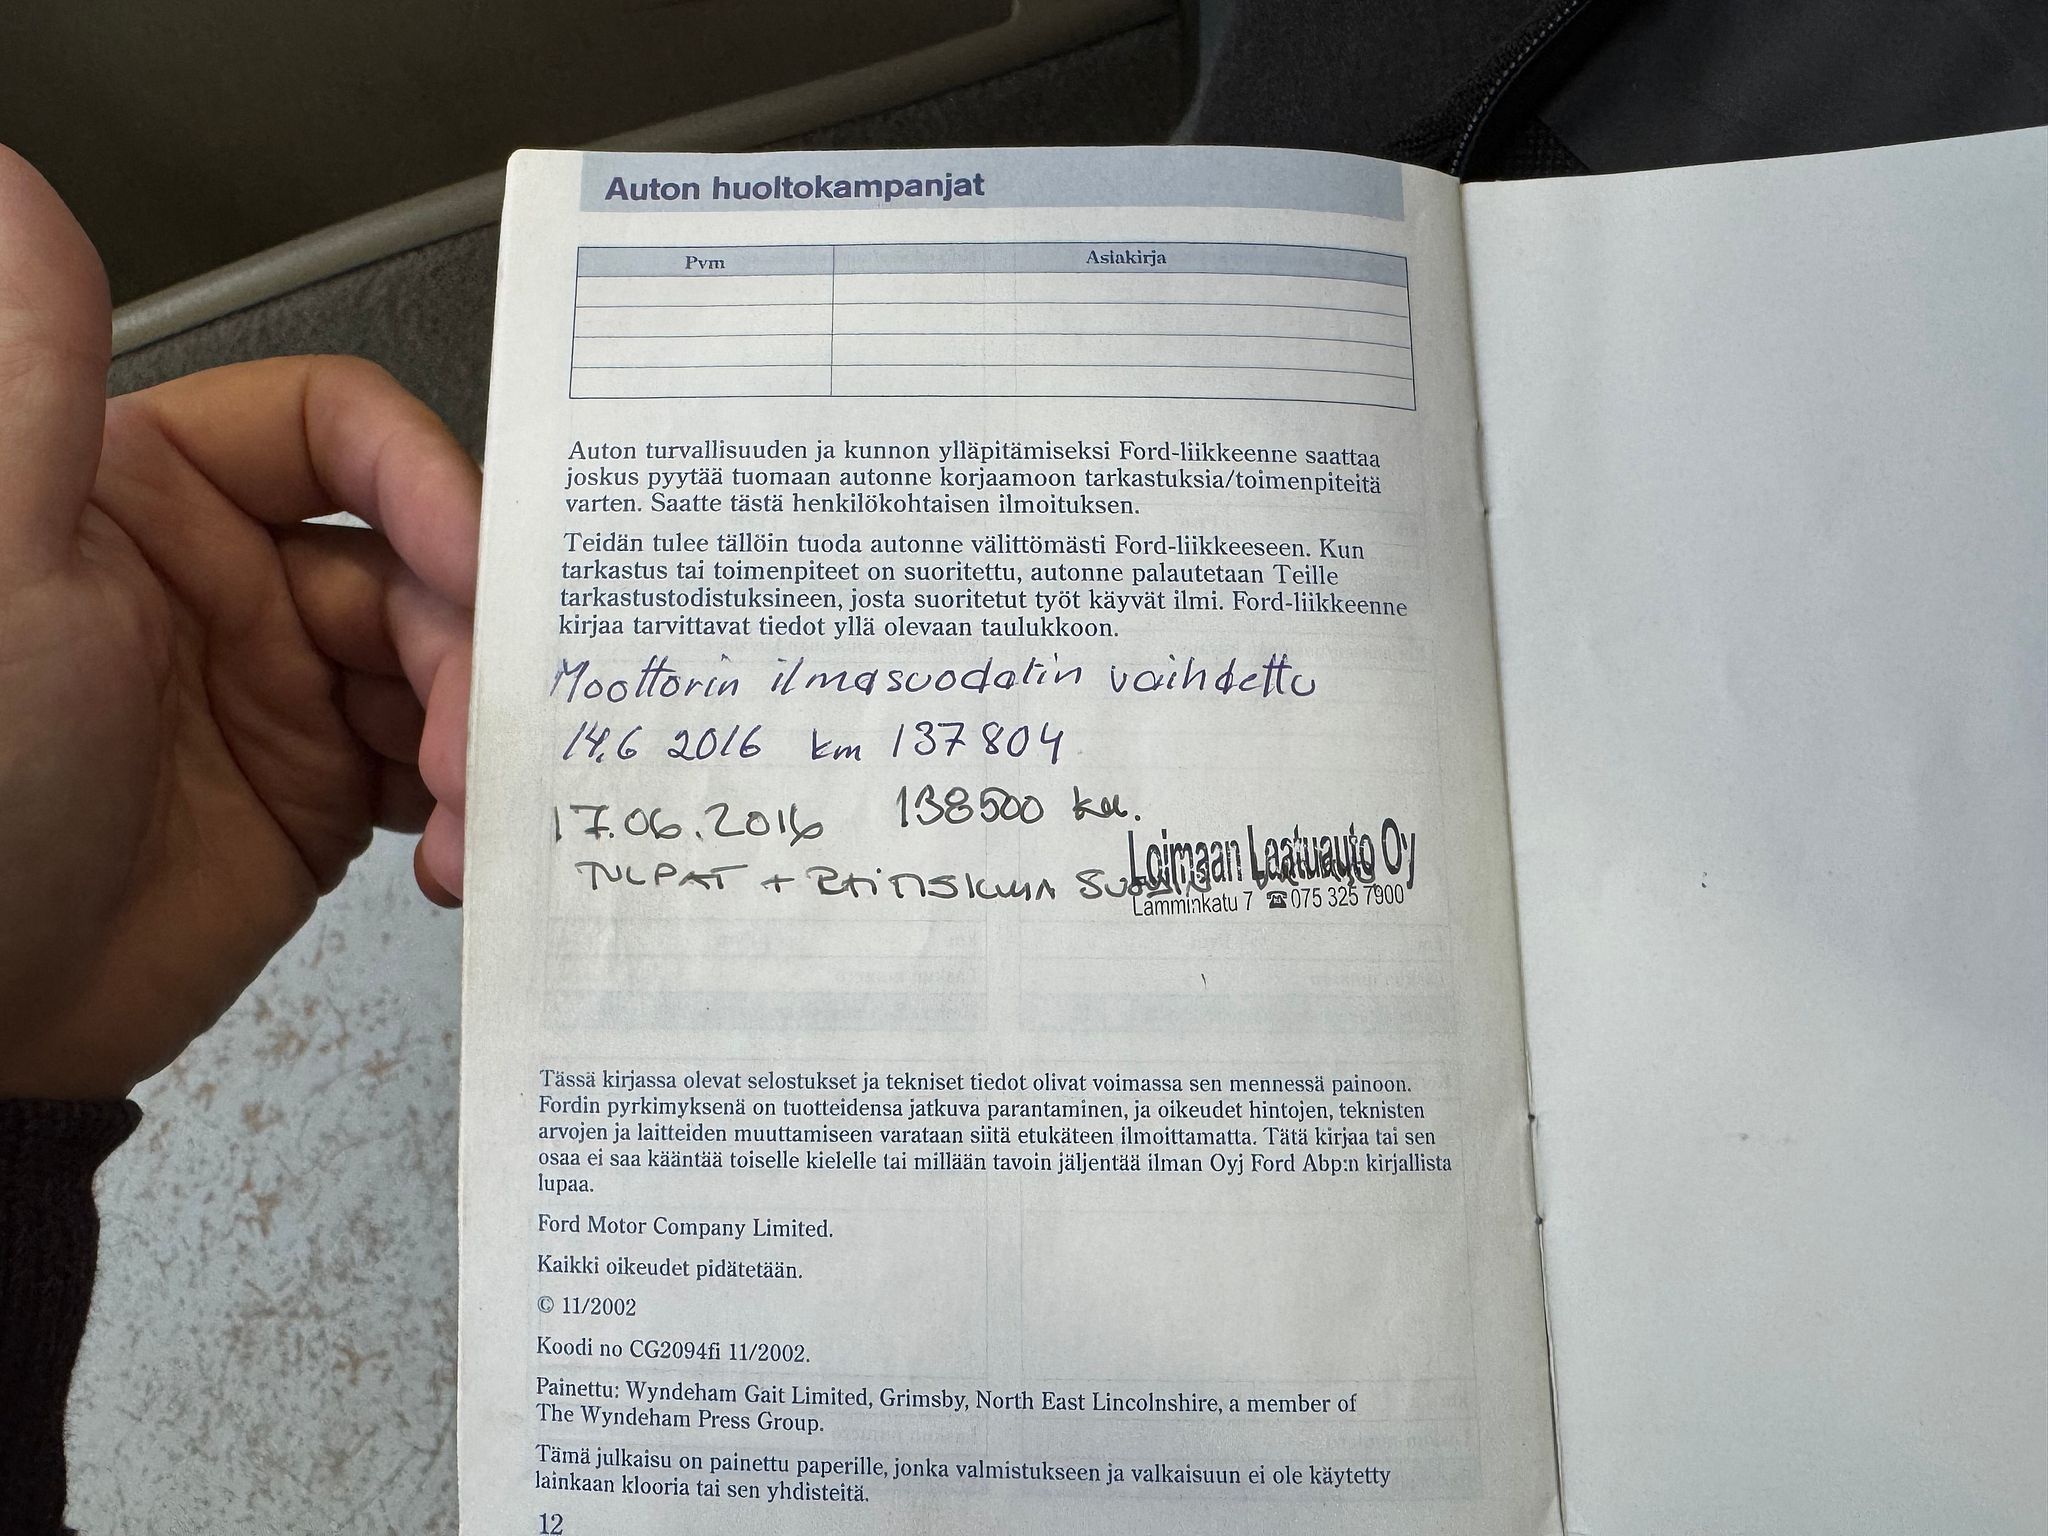 Auton huoltokampanjat
Pvm Asiakirja
Auton turvallisuuden ja kunnon ylläpitämiseksi Ford-liikkeenne saattaa
joskus pyytää tuomaan autonne korjaamoon tarkastuksia/toimenpiteitä
varten. Saatte tästä henkilökohtaisen ilmoituksen.
Teidän tulee tällöin tuoda autonne välittömästi Ford-liikkeeseen. Kun
tarkastus tai toimenpiteet on suoritettu, autonne palautetaan Teille
tarkastustodistuksineen, josta suoritetut työt käyvät ilmi. Ford-liikkeenne
kirjaa tarvittavat tiedot yllä olevaan taulukkoon.
Moottorin ilmasuodatin vaihdettu
14.6 2016 km 137804
17.06.2016 138500 km.
TULPAT + RAITISILMA
Loimaan Laatuauto Oy
Lamminkatu 7 ☎075 325 7900
Tässä kirjassa olevat selostukset ja tekniset tiedot olivat voimassa sen mennessä painoon.
Fordin pyrkimyksenä on tuotteidensa jatkuva parantaminen, ja oikeudet hintojen, teknisten
arvojen ja laitteiden muuttamiseen varataan siitä etukäteen ilmoittamatta. Tätä kirjaa tai sen
osaa ei saa kääntää toiselle kielelle tai millään tavoin jäljentää ilman Oyj Ford Abp:n kirjallista
lupaa.
Ford Motor Company Limited.
Kaikki oikeudet pidätetään.
© 11/2002
Koodi no CG2094fi 11/2002.
Painettu: Wyndeham Gait Limited, Grimsby, North East Lincolnshire, a member of
The Wyndeham Press Group.
Tämä julkaisu on painettu paperille, jonka valmistukseen ja valkaisuun ei ole käytetty
lainkaan klooria tai sen yhdisteitä.
12